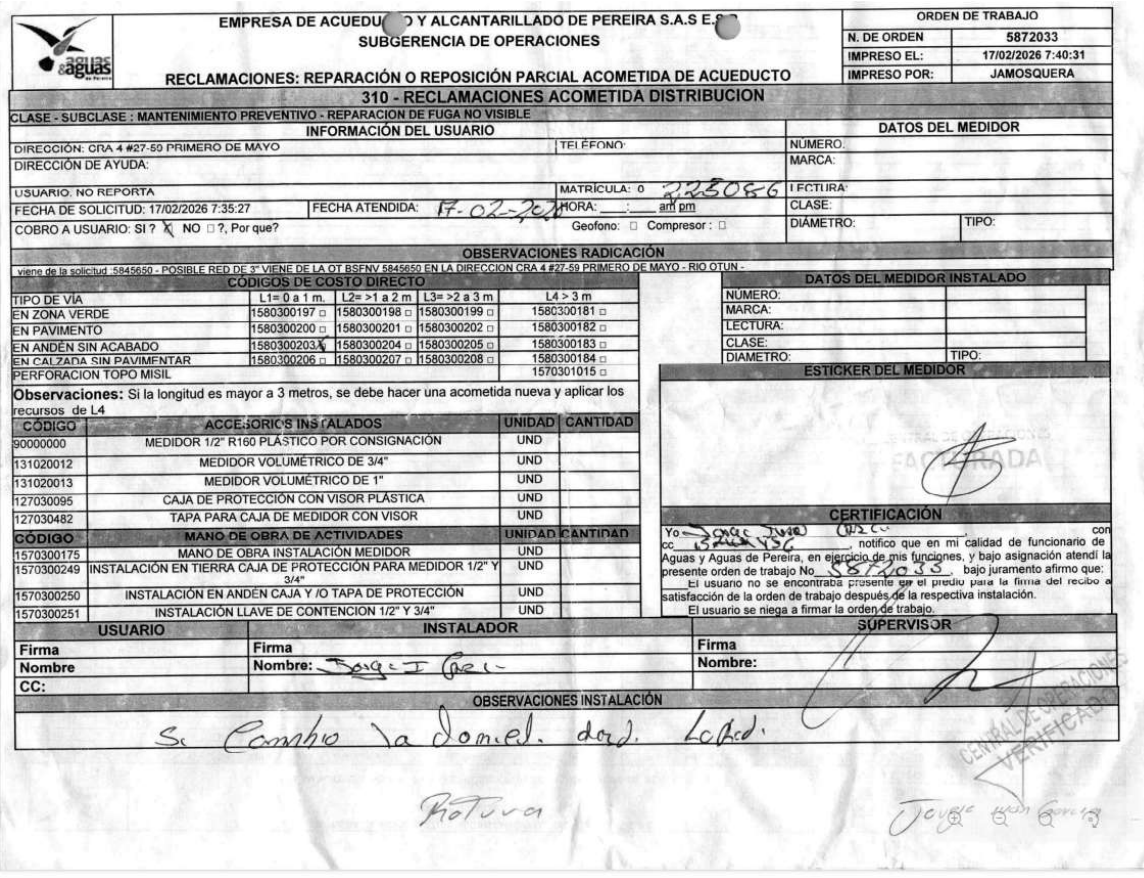 EMPRESA DE ACUEDU O Y ALCANTARILLADO DE PEREIRA S.A.S E.S
SUBGERENCIA DE OPERACIONES
RECLAMACIONES: REPARACIÓN O REPOSICIÓN PARCIAL ACOMETIDA DE ACUEDUCTO
aguas
&aguas
de Pereira
ORDEN DE TRABAJO
N. DE ORDEN 5872033
IMPRESO EL: 17/02/2026 7:40:31
IMPRESO POR: JAMOSQUERA
310 - RECLAMACIONES ACOMETIDA DISTRIBUCION
CLASE - SUBCLASE : MANTENIMIENTO PREVENTIVO - REPARACION DE FUGA NO VISIBLE
INFORMACIÓN DEL USUARIO DATOS DEL MEDIDOR
DIRECCIÓN: CRA 4 #27-59 PRIMERO DE MAYO TELÉFONO: NÚMERO:
DIRECCIÓN DE AYUDA: MARCA:
USUARIO: NO REPORTA MATRÍCULA: 0 225086 LECTURA:
FECHA DE SOLICITUD: 17/02/2026 7:35:27 FECHA ATENDIDA: 17-02-2026 HORA: ___:___ am pm CLASE:
COBRO A USUARIO: SI ? X NO □ ?, Por que? Geofono: □ Compresor : □ DIÁMETRO: TIPO:
OBSERVACIONES RADICACIÓN
viene de la solicitud :5845650 - POSIBLE RED DE 3" VIENE DE LA OT BSFNV 5845650 EN LA DIRECCION CRA 4 #27-59 PRIMERO DE MAYO - RIO OTUN -
CÓDIGOS DE COSTO DIRECTO
TIPO DE VÍA L1= 0 a 1 m. L2= >1 a 2 m L3= >2 a 3 m L4 > 3 m
EN ZONA VERDE 1580300197 □ 1580300198 □ 1580300199 □ 1580300181 □
EN PAVIMENTO 1580300200 □ 1580300201 □ 1580300202 □ 1580300182 □
EN ANDÉN SIN ACABADO 1580300203 X 1580300204 □ 1580300205 □ 1580300183 □
EN CALZADA SIN PAVIMENTAR 1580300206 □ 1580300207 □ 1580300208 □ 1580300184 □
PERFORACION TOPO MISIL 1570301015 □
Observaciones: Si la longitud es mayor a 3 metros, se debe hacer una acometida nueva y aplicar los
recursos de L4
DATOS DEL MEDIDOR INSTALADO
NÚMERO:
MARCA:
LECTURA:
CLASE:
DIAMETRO: TIPO:
ESTICKER DEL MEDIDOR
FACTURADA
CÓDIGO ACCESORIOS INSTALADOS UNIDAD CANTIDAD
90000000 MEDIDOR 1/2" R160 PLÁSTICO POR CONSIGNACIÓN UND
131020012 MEDIDOR VOLUMÉTRICO DE 3/4" UND
131020013 MEDIDOR VOLUMÉTRICO DE 1" UND
127030095 CAJA DE PROTECCIÓN CON VISOR PLÁSTICA UND
127030482 TAPA PARA CAJA DE MEDIDOR CON VISOR UND
CÓDIGO MANO DE OBRA DE ACTIVIDADES UNIDAD CANTIDAD
1570300175 MANO DE OBRA INSTALACIÓN MEDIDOR UND
1570300249 INSTALACIÓN EN TIERRA CAJA DE PROTECCIÓN PARA MEDIDOR 1/2" Y UND
3/4"
1570300250 INSTALACIÓN EN ANDÉN CAJA Y /O TAPA DE PROTECCIÓN UND
1570300251 INSTALACIÓN LLAVE DE CONTENCION 1/2" Y 3/4" UND
CERTIFICACIÓN
Yo Jorge con
cc , notifico que en mi calidad de funcionario de
Aguas y Aguas de Pereira, en ejercicio de mis funciones, y bajo asignación atendí la
presente orden de trabajo No. 5872033 bajo juramento afirmo que:
El usuario no se encontraba presente en el predio para la firma del recibo a
satisfacción de la orden de trabajo después de la respectiva instalación.
El usuario se niega a firmar la orden de trabajo.
USUARIO INSTALADOR SUPERVISOR
Firma Firma Firma
Nombre Nombre: Jorge I Nombre:
CC:
OBSERVACIONES INSTALACIÓN
Se Cambio la domici.
CENTRAL DE OPERACIONES
VERIFICADO
Rotura
Jorge Ivan